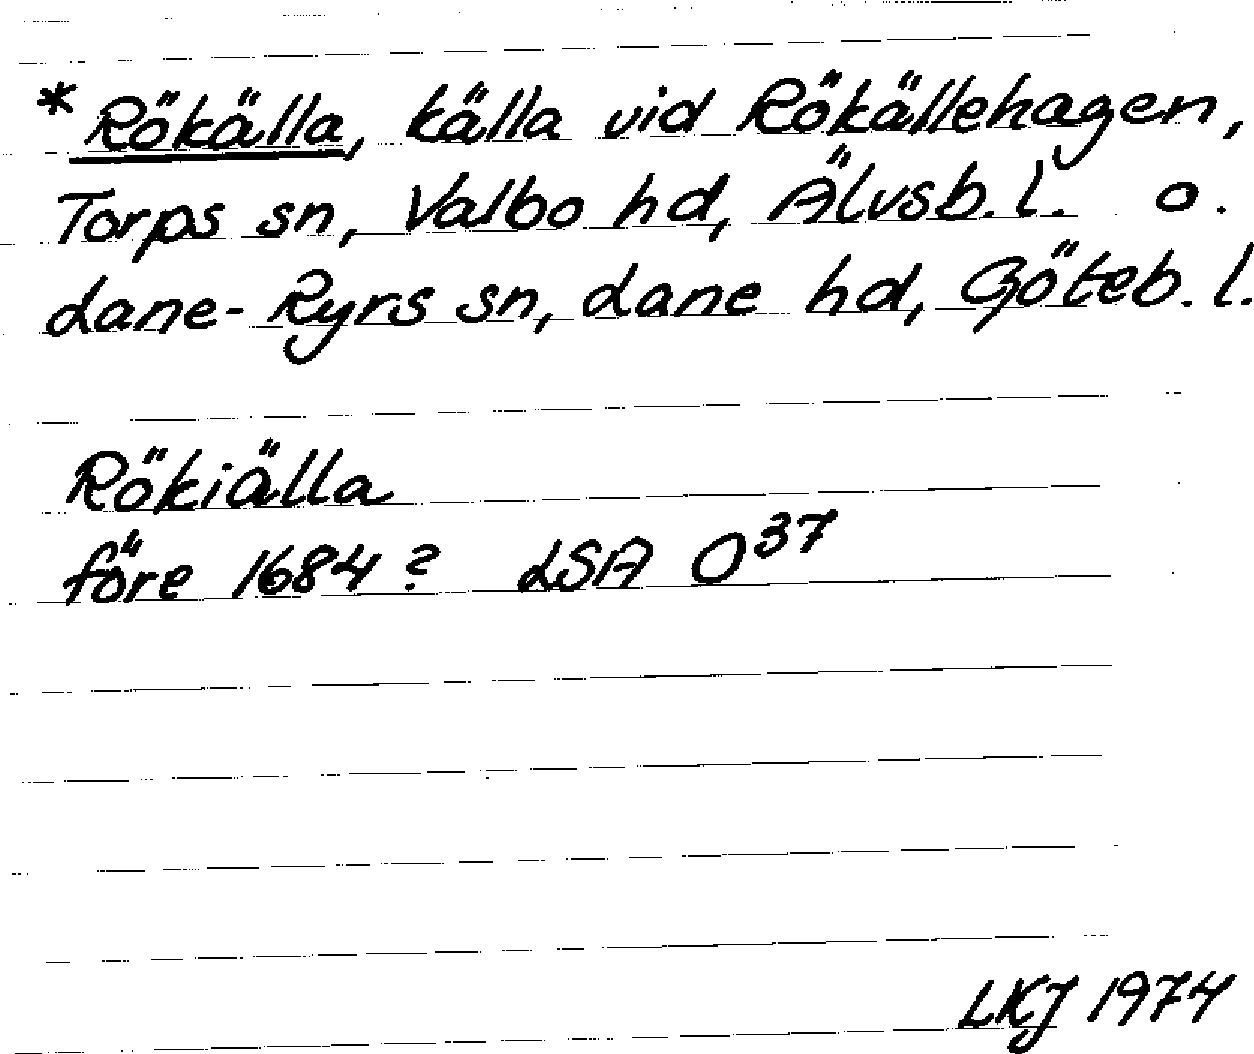 *Rökälla, källa vid Rökällehagen,
Torps sn, Valbo hd, Älvsb. l. o.
Lane-Ryrs sn, Lane hd, Göteb. l.
Rökiälla
före 1684? LSA O³⁷
LKJ 1974